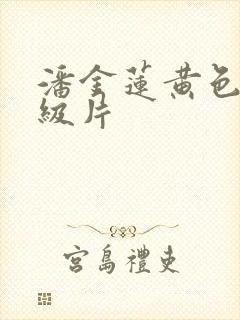 潘金蓮黃色
級片
宮島禮吏